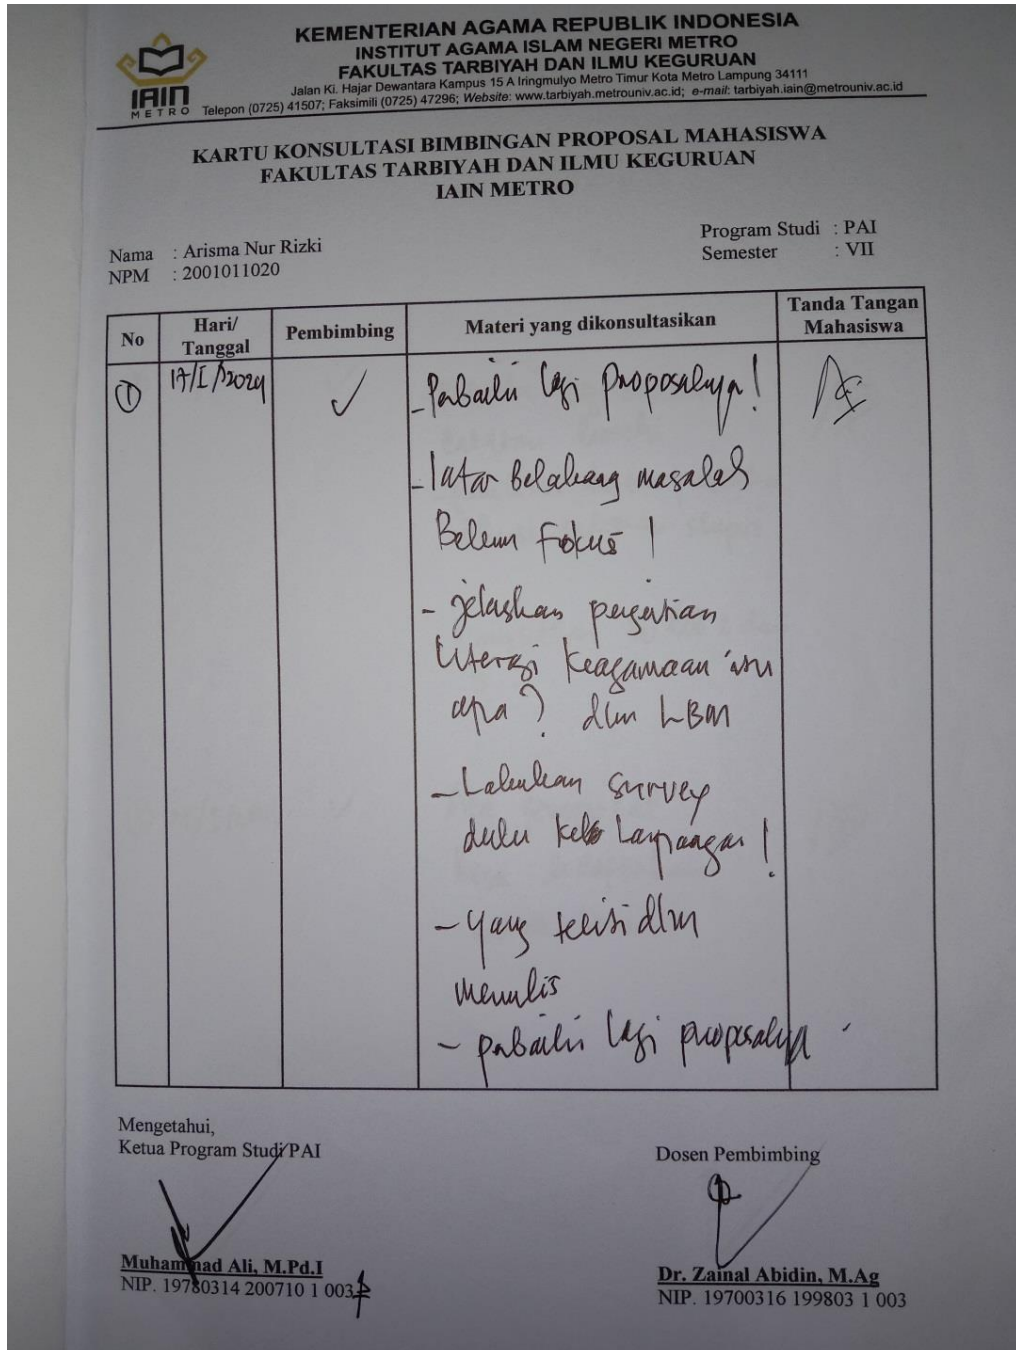 KEMENTERIAN AGAMA REPUBLIK INDONESIA
INSTITUT AGAMA ISLAM NEGERI METRO
FAKULTAS TARBIYAH DAN ILMU KEGURUAN
Jalan Ki. Hajar Dewantara Kampus 15 A Iringmulyo Metro Timur Kota Metro Lampung 34111
Telepon (0725) 41507; Faksimili (0725) 47296; Website: www.tarbiyah.metrouniv.ac.id; e-mail: tarbiyah.iain@metrouniv.ac.id
IAIN
METRO
KARTU KONSULTASI BIMBINGAN PROPOSAL MAHASISWA
FAKULTAS TARBIYAH DAN ILMU KEGURUAN
IAIN METRO
Nama : Arisma Nur Rizki
NPM : 2001011020
Program Studi : PAI
Semester : VII
No
Hari/
Tanggal
Pembimbing
Materi yang dikonsultasikan
Tanda Tangan
Mahasiswa
1
17/I/2024
✓
- Perbaiki lagi proposalnya!
- latar Belakang masalah
Belum Fokus !
- jelaskan pengertian
Literasi keagamaan itu
apa? dlm LBM
- Lakukan survey
dulu ke Lapangan !
- yang teliti dlm
menulis
- perbaiki lagi proposalnya
Mengetahui,
Ketua Program Studi PAI
Muhammad Ali, M.Pd.I
NIP. 19780314 200710 1 003
Dosen Pembimbing
Dr. Zainal Abidin, M.Ag
NIP. 19700316 199803 1 003